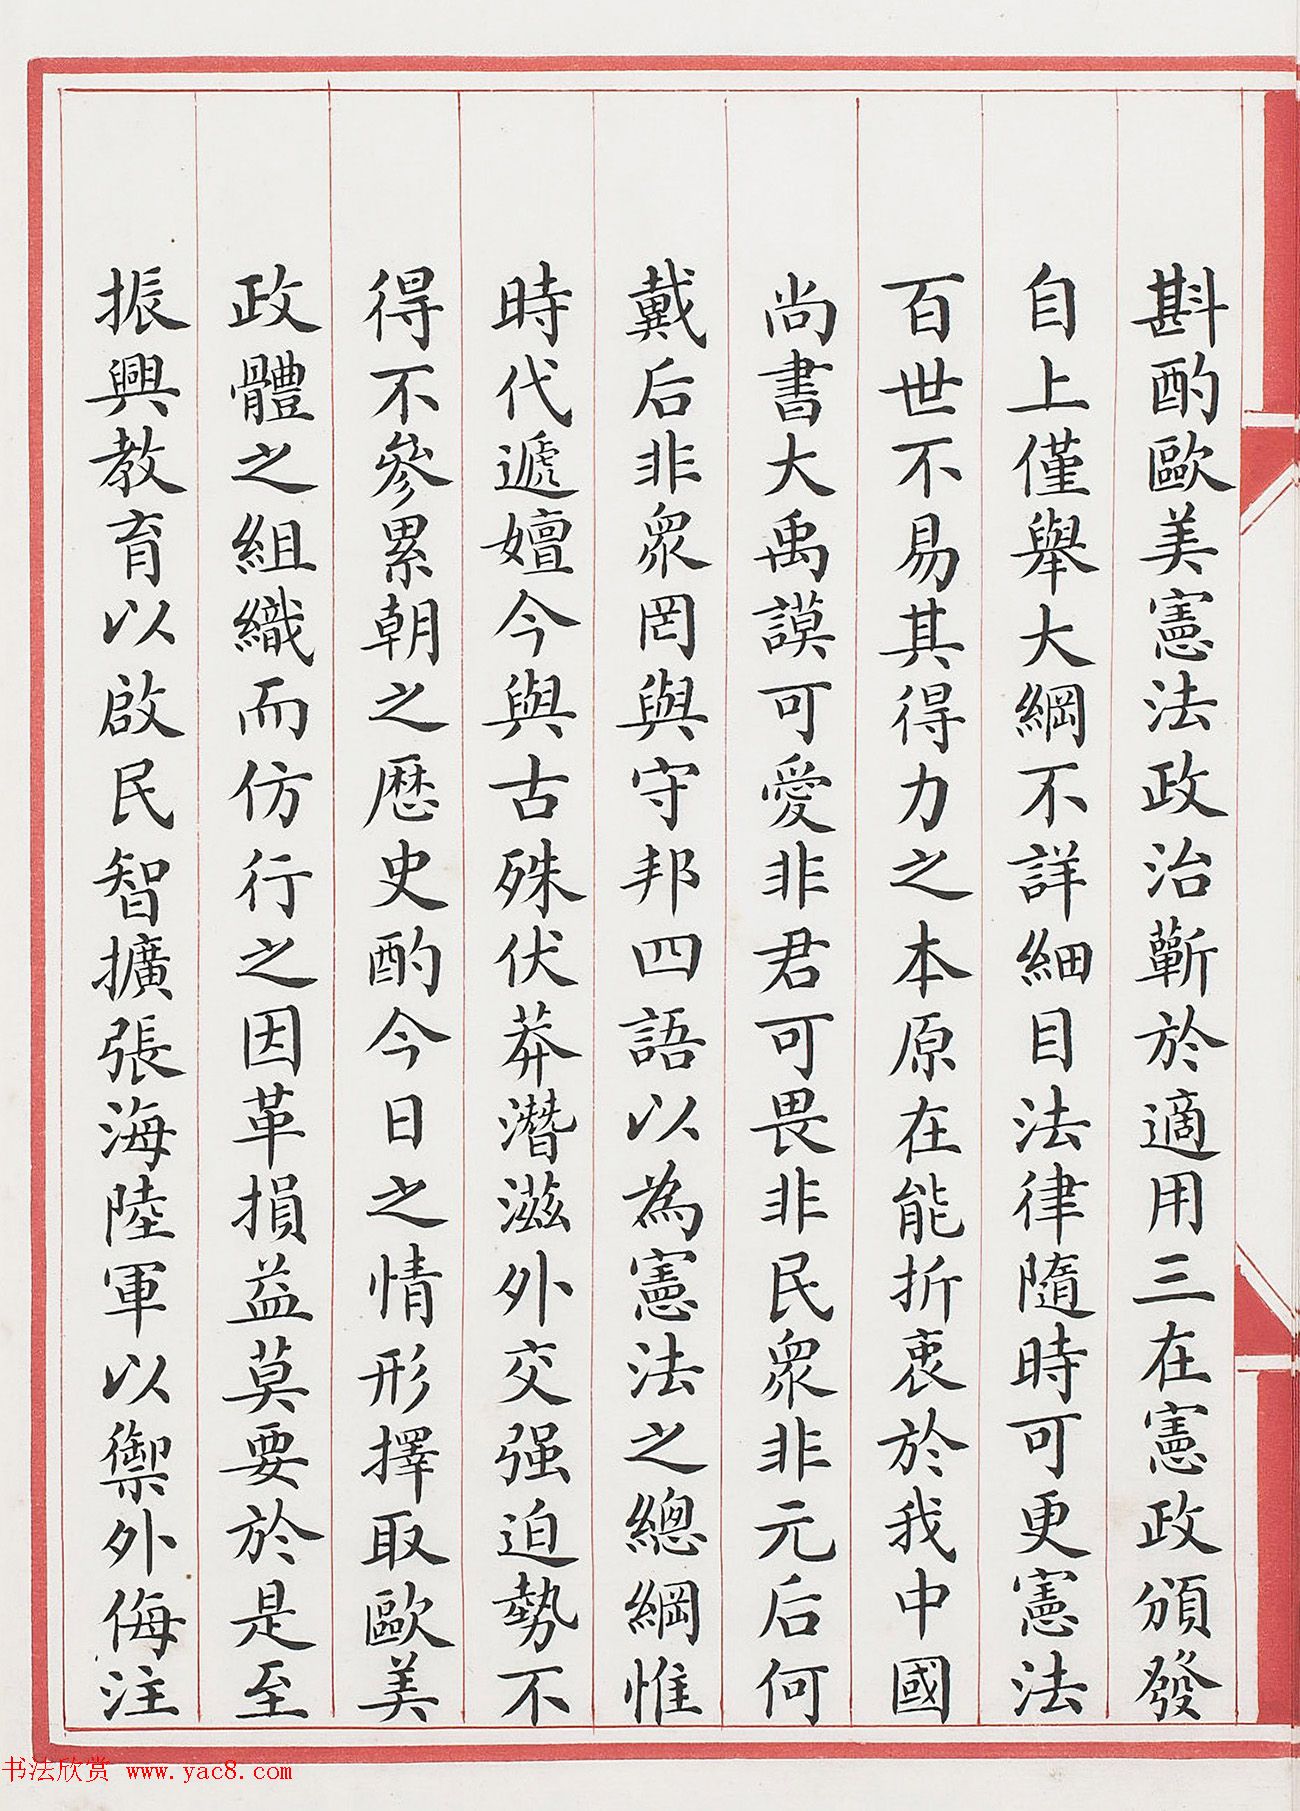 斟酌歐美憲法政治蘄於適用三在憲政頒發
自上僅舉大綱不詳細目法律隨時可更憲法
百世不易其得力之本原在能折衷於我中國
尚書大禹謨可愛非君可畏非民衆非元后何
戴后非衆罔與守邦四語以為憲法之總綱惟
時代遞嬗今與古殊伏莽潛滋外交强迫勢不
得不參累朝之歷史酌今日之情形擇取歐美
政體之組織而仿行之因革損益莫要於是至
振興教育以啟民智擴張海陸軍以禦外侮注
书法欣赏 www.yac8.com